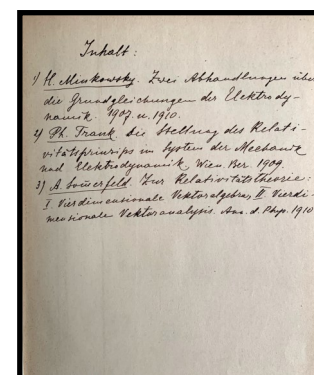 Inhalt:
1) H. Minkowsky. Zwei Abhandlungen über
die Grundgleichungen der Elektrody-
namik. 1907. u. 1910.
2) Ph. Frank. Die Stellung des Relati-
vitätsprinzips im System der Mechanik
und Elektrodynamik. Wien. Ber. 1909.
3) A. Som̄erfeld. Zur Relativitätstheorie:
I. Vierdimensionale Vektoralgebra, II Vierdi-
mensionale Vektoranalysis. Ann. d. Phys. 1910